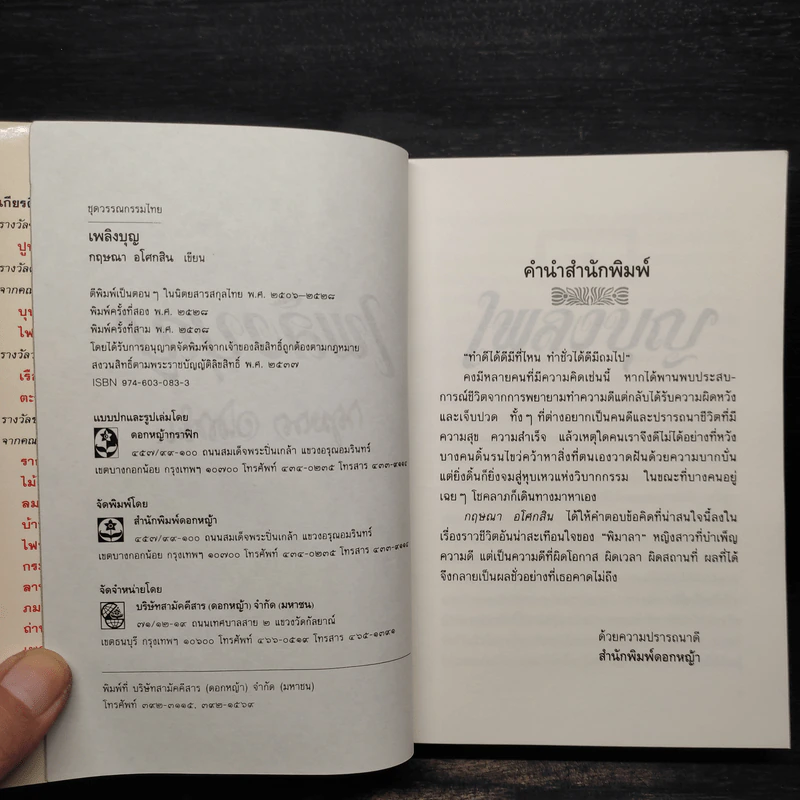 เกียรติ
รางวัล
ปู
รางวัล
จากคณ
บุ
ไฟ
รางวัล
เรือ
ตะ
รางวัล
จากคณ
ราย
ไม้
ลม
บ้า
ไฟ
กร
ลา
ภม
ถ่า
ชุดวรรณกรรมไทย
เพลิงบุญ
กฤษณา อโศกสิน เขียน
ตีพิมพ์เป็นตอนๆ ในนิตยสารสกุลไทย พ.ศ. ๒๕๐๖–๒๕๒๘
พิมพ์ครั้งที่สอง พ.ศ. ๒๕๒๘
พิมพ์ครั้งที่สาม พ.ศ. ๒๕๓๘
โดยได้รับการอนุญาตจัดพิมพ์จากเจ้าของลิขสิทธิ์ถูกต้องตามกฎหมาย
สงวนสิทธิ์ตามพระราชบัญญัติลิขสิทธิ์ พ.ศ. ๒๕๓๗
ISBN 974-603-083-3
แบบปกและรูปเล่มโดย
ดอกหญ้ากราฟิก
๔๕๗/๙๙-๑๐๐ ถนนสมเด็จพระปิ่นเกล้า แขวงอรุณอมรินทร์
เขตบางกอกน้อย กรุงเทพฯ ๑๐๗๐๐ โทรศัพท์ ๔๓๔-๐๒๓๕ โทรสาร
จัดพิมพ์โดย
สำนักพิมพ์ดอกหญ้า
๔๕๗/๙๙-๑๐๐ ถนนสมเด็จพระปิ่นเกล้า แขวงอรุณอมรินทร์
เขตบางกอกน้อย กรุงเทพฯ ๑๐๗๐๐ โทรศัพท์ ๔๓๔-๐๒๓๕ โทรสาร
จัดจำหน่ายโดย
บริษัทสามัคคีสาร (ดอกหญ้า) จำกัด (มหาชน)
๗๑/๑๒-๑๙ ถนนเทศบาลสาย ๒ แขวงวัดกัลยาณ์
เขตธนบุรี กรุงเทพฯ ๑๐๖๐๐ โทรศัพท์ ๔๖๖-๐๕๑๙ โทรสาร ๔๖๕-๑๓๙๑
พิมพ์ที่ บริษัทสามัคคีสาร (ดอกหญ้า) จำกัด (มหาชน)
โทรศัพท์ ๓๙๒-๓๑๑๕, ๓๙๒-๑๕๖๙
คำนำสำนักพิมพ์
"ทำดีได้ดีมีที่ไหน ทำชั่วได้ดีมีถมไป"
คงมีหลายคนที่มีความคิดเช่นนี้ หากได้พานพบประสบ-
การณ์ชีวิตจากการพยายามทำความดีแต่กลับได้รับความผิดหวัง
และเจ็บปวด ทั้งๆ ที่ต่างอยากเป็นคนดีและปรารถนาชีวิตที่มี
ความสุข ความสำเร็จ แล้วเหตุใดคนเราจึงดีไม่ได้อย่างที่หวัง
บางคนดิ้นรนไขว่คว้าหาสิ่งที่ตนเองวาดฝันด้วยความบากบั่น
แต่ยิ่งดิ้นก็ยิ่งจมสู่หุบเหวแห่งวิบากกรรม ในขณะที่บางคนอยู่
เฉยๆ โชคลาภก็เดินทางมาหาเอง
กฤษณา อโศกสิน ได้ให้คำตอบข้อคิดที่น่าสนใจนี้ลงใน
เรื่องราวชีวิตอันน่าสะเทือนใจของ "พิมาลา" หญิงสาวที่บำเพ็ญ
ความดี แต่เป็นความดีที่ผิดโอกาส ผิดเวลา ผิดสถานที่ ผลที่ได้
จึงกลายเป็นผลชั่วอย่างที่เธอคาดไม่ถึง
ด้วยความปรารถนาดี
สำนักพิมพ์ดอกหญ้า